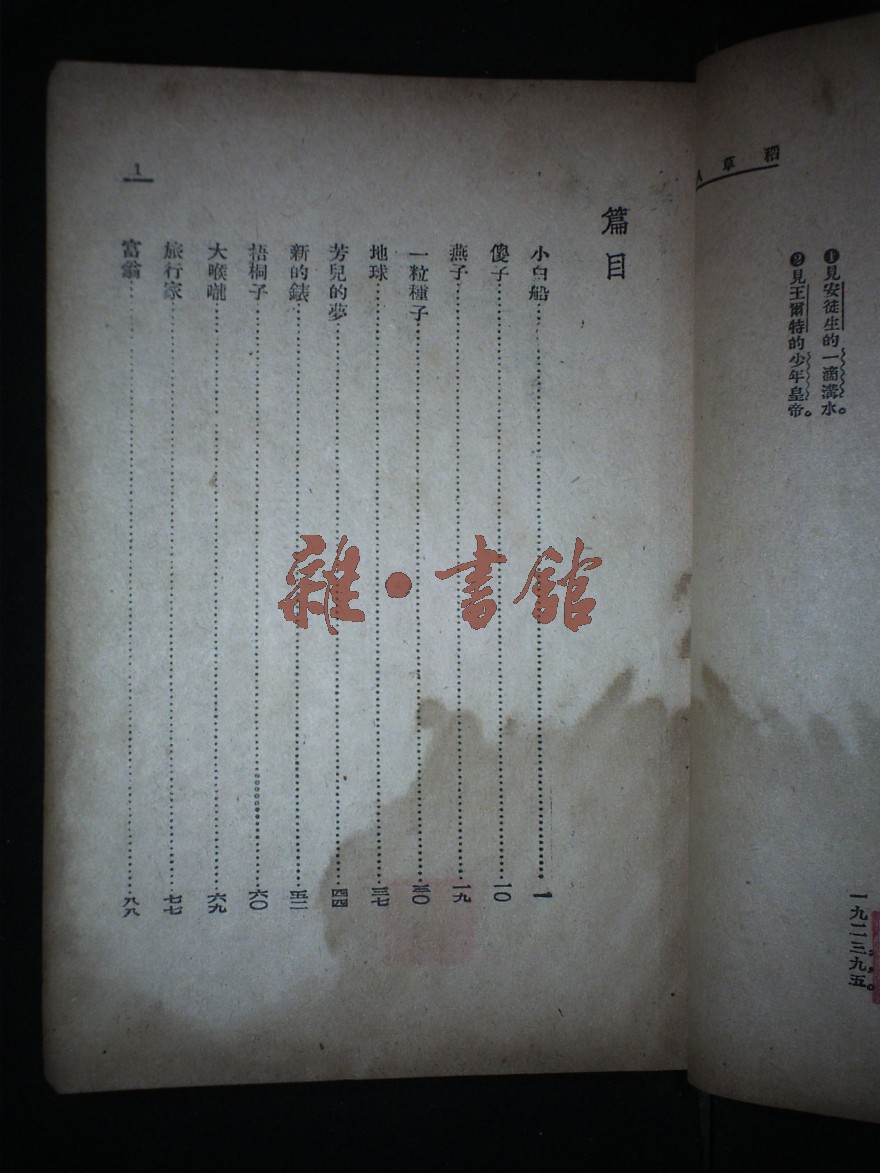 稻草人
❶見安徒生的一滴溝水。
❷見王爾特的少年皇帝。
一九二三，九，五。
篇目
小白船……一
傻子……一〇
燕子……一九
一粒種子……三〇
地球……三七
芳兒的夢……四四
新的錶……五二
梧桐子……六〇
大喉嚨……六九
旅行家……七七
富翁……八八
1
雜·書館